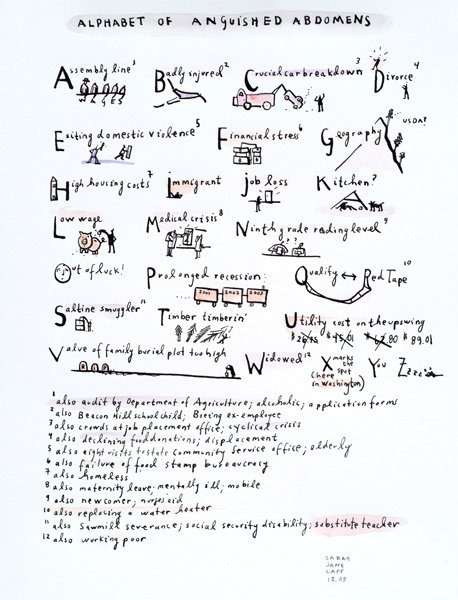 ALPHABET OF ANGUISHED ABDOMENS
Assembly line¹
WAGES
Badly injured²
Crucial car breakdown³
Divorce⁴
Exiting domestic violence⁵
Financial stress⁶
Geography
USDA?
High housing costs⁷
Immigrant
Job loss
Kitchen?
Low wage
Medical crisis⁸
Ninth grade reading level⁹
? ?
Out of luck!
Prolonged recession
2001 2002 2003
Quality ↔ Red Tape¹⁰
Saltine smuggler¹¹
Timber timberin'
Utility cost on the upswing
$89.01
Value of family burial plot too high
Widowed¹²
X marks the spot
(here in Washington)
You
Zzzz
1 also audit by Department of Agriculture; alcoholic; application forms
2 also Beacon Hill school child; Boeing ex-employee
3 also crowds at job placement office; cyclical crisis
4 also declining food donations; displacement
5 also eight visits to state Community Service Office; elderly
6 also failure of food stamp bureaucracy
7 also homeless
8 also maternity leave; mentally ill; mobile
9 also newcomer; nurses aid
10 also replacing a water heater
11 also Sawmill severance; social security disability; substitute teacher
12 also working poor
SARAH
JANE
LAPP
12.03